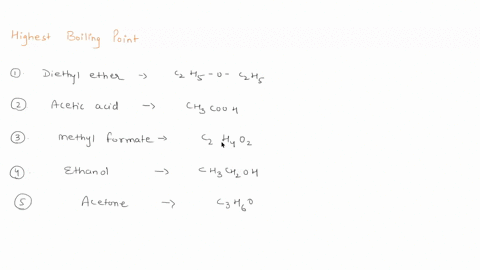 Highest Boiling Point
① Diethyl ether -> C2H5-O-C2H5
② Acetic acid -> CH3COOH
③ methyl formate -> C2H4O2
④ Ethanol -> CH3CH2OH
⑤ Acetone -> C3H6O